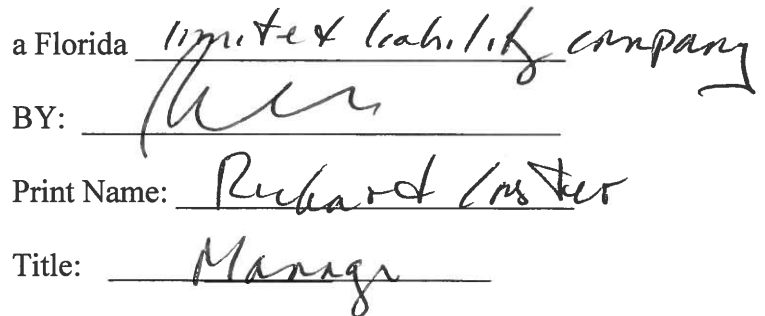 a Florida limited liability company
BY:
Print Name: Richard
Title: Manager